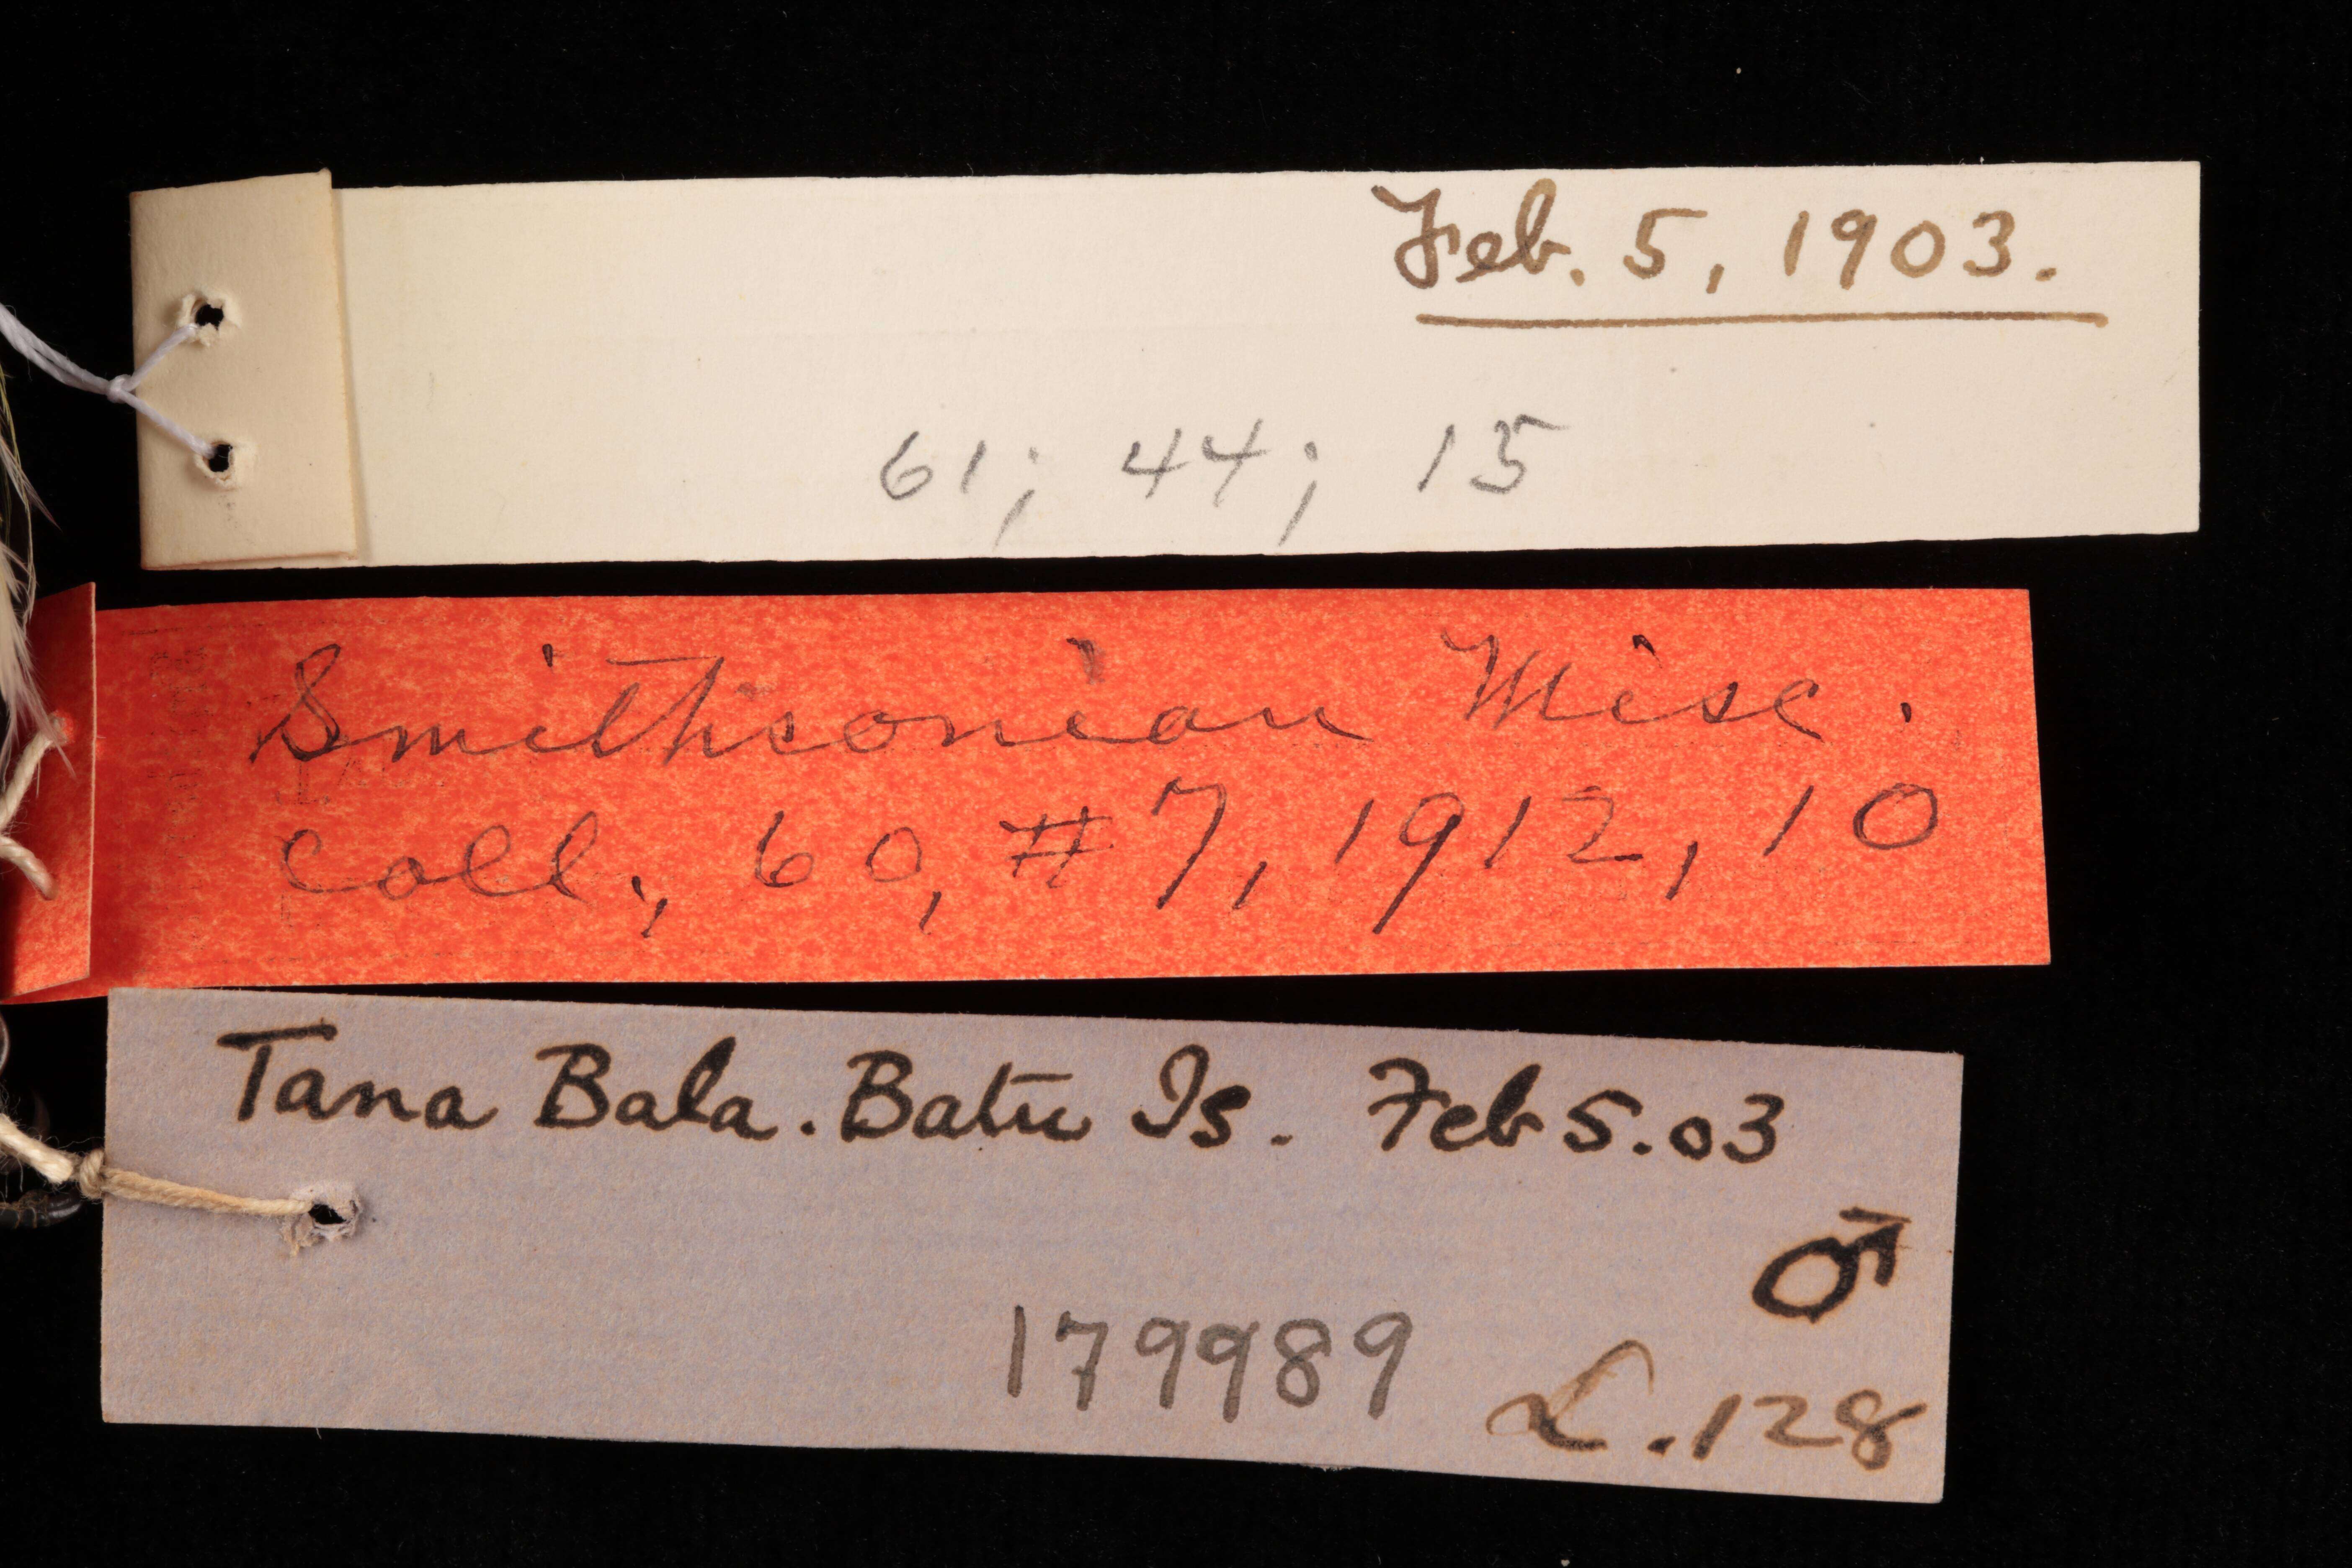 Feb. 5, 1903.
61; 44; 15
Smithsonian Misc.
Coll., 60, #7, 1912, 10
Tana Bala. Batu Is. Feb 5.03
♂
179989
L.128